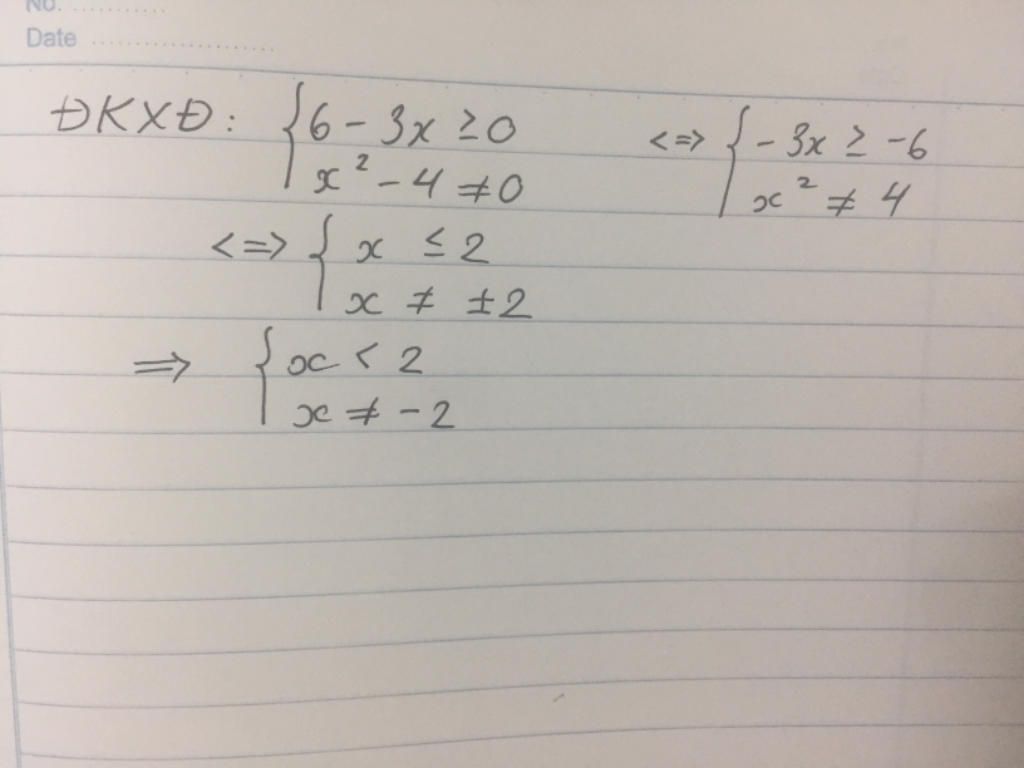 No. ............
Date ........................
ĐKXĐ: { 6 - 3x ≥ 0 <=> { - 3x ≥ -6
x² - 4 ≠ 0 x² ≠ 4
<=> { x ≤ 2
x ≠ ±2
=> { x < 2
x ≠ -2